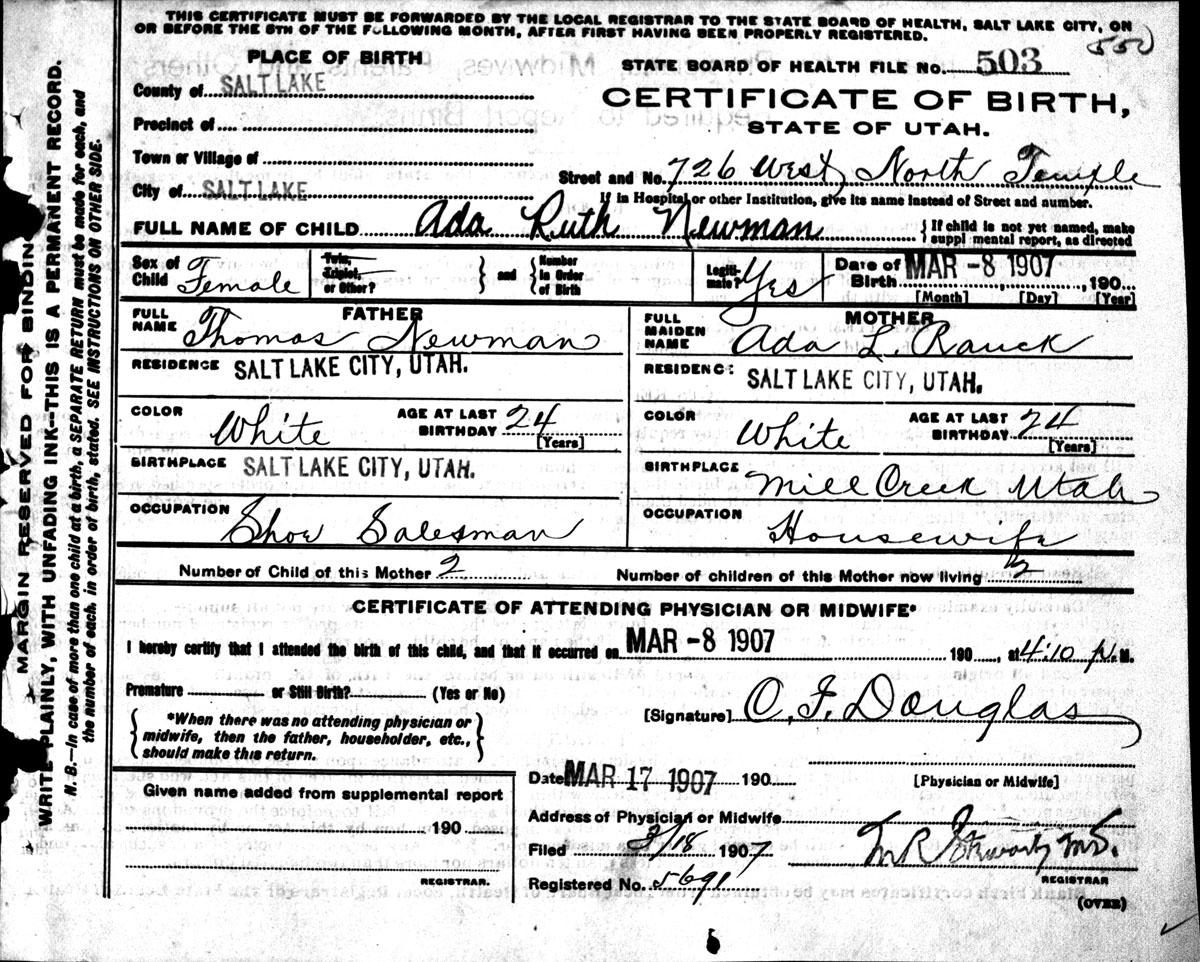 THIS CERTIFICATE MUST BE FORWARDED BY THE LOCAL REGISTRAR TO THE STATE BOARD OF HEALTH, SALT LAKE CITY, ON
OR BEFORE THE 5TH OF THE FOLLOWING MONTH, AFTER FIRST HAVING BEEN PROPERLY REGISTERED.
550
PLACE OF BIRTH
County of SALT LAKE
Precinct of
Town or Village of
City of SALT LAKE
STATE BOARD OF HEALTH FILE No. 503
CERTIFICATE OF BIRTH,
STATE OF UTAH.
Street and No. 726 West North Temple
If in Hospital or other Institution, give its name instead of Street and number.
FULL NAME OF CHILD Ada Ruth Newman { If child is not yet named, make
suppl mental report, as directed
Sex of
Child Female
Twin,
Triplet,
or Other?
} and {
Number
in Order
of Birth
Legiti-
mate? Yes
Date of
Birth MAR -8 1907, 190
[Month] [Day] [Year]
FATHER
FULL
NAME Thomas Newman
RESIDENCE SALT LAKE CITY, UTAH.
COLOR White AGE AT LAST
BIRTHDAY 24
[Years]
BIRTHPLACE SALT LAKE CITY, UTAH.
OCCUPATION Shoe Salesman
MOTHER
FULL
MAIDEN
NAME Ada L. Rauck
RESIDENC: SALT LAKE CITY, UTAH.
COLOR White AGE AT LAST
BIRTHDAY 24
[Years]
BIRTHPLACE Mill Creek Utah
OCCUPATION Housewife
Number of Child of this Mother 2 Number of children of this Mother now living 2
CERTIFICATE OF ATTENDING PHYSICIAN OR MIDWIFE*
I hereby certify that I attended the birth of this child, and that it occurred on MAR -8 1907 190, at 4:10 P. M.
Premature or Still Birth? (Yes or No)
{ *When there was no attending physician or
midwife, then the father, householder, etc.,
should make this return. }
[Signature] C. F. Douglas
[Physician or Midwife]
Date MAR 17 1907 190
Given name added from supplemental report
190
REGISTRAR.
Address of Physician or Midwife
Filed 3/18 1907
Registered No. 5691
M.D.
REGISTRAR
(OVER)
MARGIN RESERVED FOR BINDING
WRITE PLAINLY, WITH UNFADING INK--THIS IS A PERMANENT RECORD.
N. B.--In case of more than one child at a birth, a SEPARATE RETURN must be made for each, and
the number of each, in order of birth, stated. SEE INSTRUCTIONS ON OTHER SIDE.